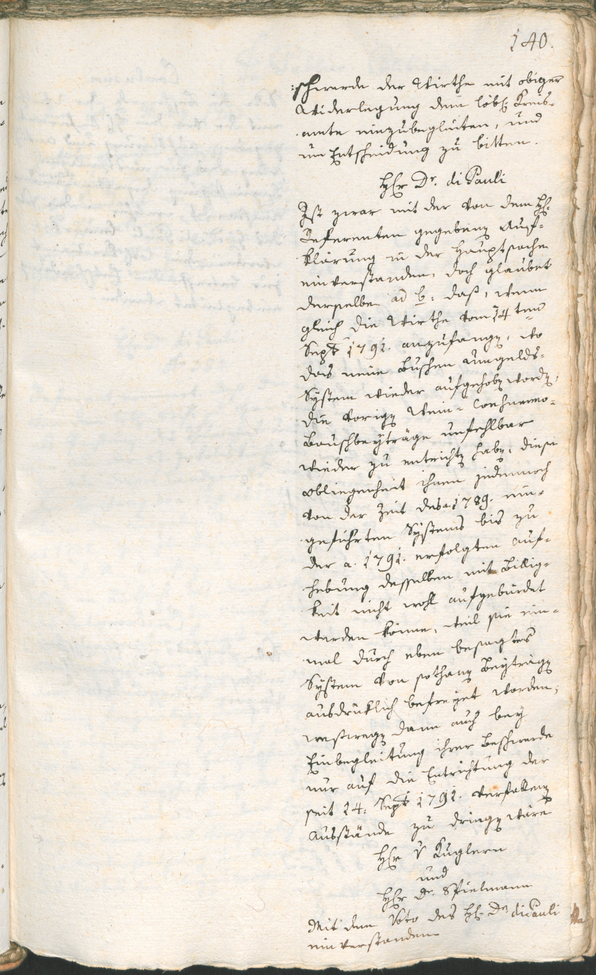 140.
schwerde der Wirthe mit obiger
Widerlegung dem löbl: Kreis-
amte einzubegleiten, und
um Entscheidung zu bitten.
H[er]r Dr. di Pauli
Ist zwar mit der von dem H:
Referenten gegebenen Auf-
klärung in der Hauptsache
einverstanden, doch glaubet
derselbe ad b: daß, wenn
gleich die Wirthe vom 14ten
Sept 1791. anzufangen, wo
das neue Buschen umgelds-
System wieder aufgehoben worden,
die vorigen Wein-
Bauschbeyträge unfehlbar
wieder zu entrichten haben, diese
Obliegenheit ihnen jedennoch
von der Zeit des a: 1789. ein-
geführten Systems bis zu
der a. 1791. erfolgten auf-
hebung desselben mit Billig-
keit nicht wohl aufgebürdet
werden könne, weil sie ein-
mal durch eben besagtes
System von sothanen Beyträgen
ausdrücklich befreyet worden;
weßwegen dann auch bey
Einbegleitung ihrer Beschwerde
nur auf die Entrichtung der
seit 14. Sept 1791. verfallenen
Ausstände zu dringen wäre
H[er]r v Kuglern
und
H[er]r Dr Spielmann
Mit dem Voto des H: Dr di Pauli
einverstanden